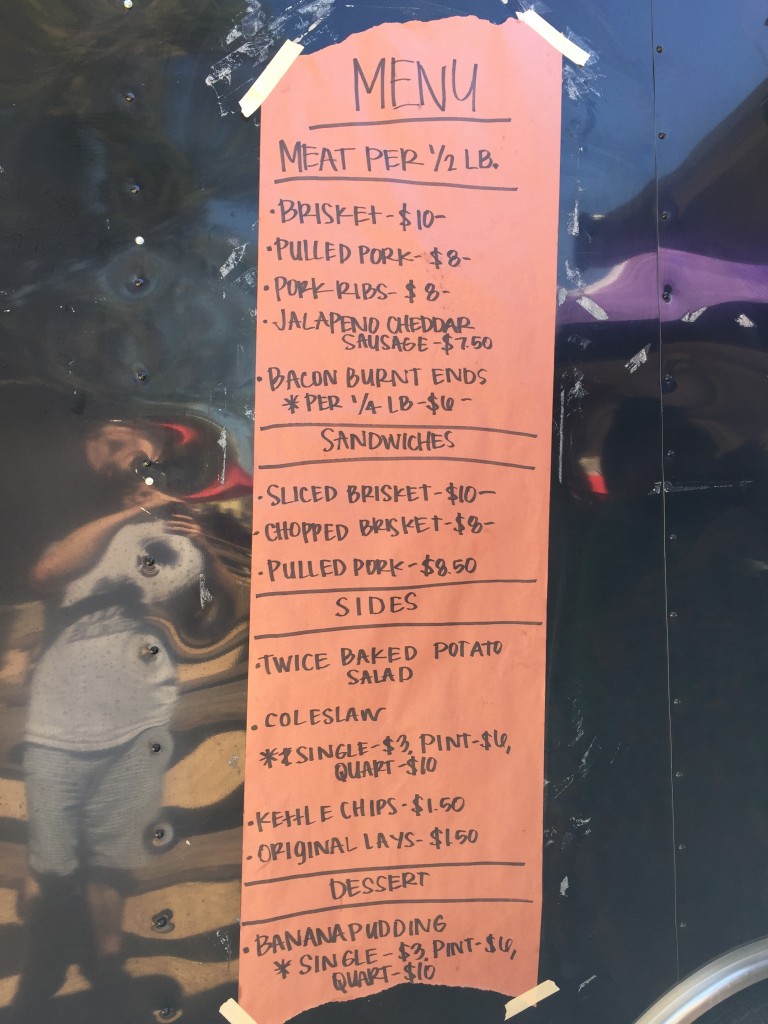 MENU
MEAT PER 1/2 LB.
·BRISKET-$10-
·PULLED PORK-$8-
·PORK RIBS-$8-
·JALAPENO CHEDDAR
SAUSAGE-$7.50
·BACON BURNT ENDS
*PER 1/4 LB-$6-
SANDWICHES
·SLICED BRISKET-$10-
·CHOPPED BRISKET-$8-
·PULLED PORK-$8.50
SIDES
·TWICE BAKED POTATO
SALAD
·COLESLAW
*SINGLE-$3, PINT-$6,
QUART-$10
·KETTLE CHIPS-$1.50
·ORIGINAL LAYS-$1.50
DESSERT
·BANANA PUDDING
*SINGLE-$3, PINT-$6,
QUART-$10